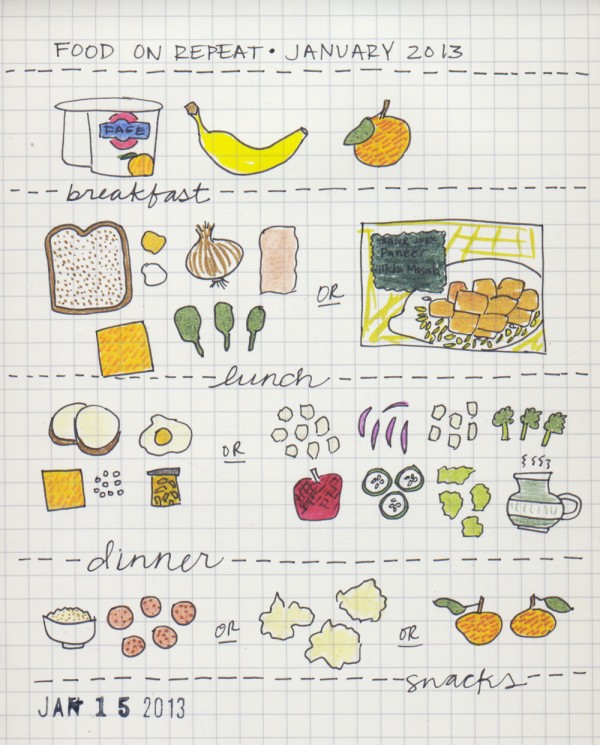 FOOD ON REPEAT • JANUARY 2013
FAGE
breakfast
OR
TRADER JOE'S
Paneer
Tikka Masala
lunch
OR
dinner
OR
OR
snacks
JAN 15 2013